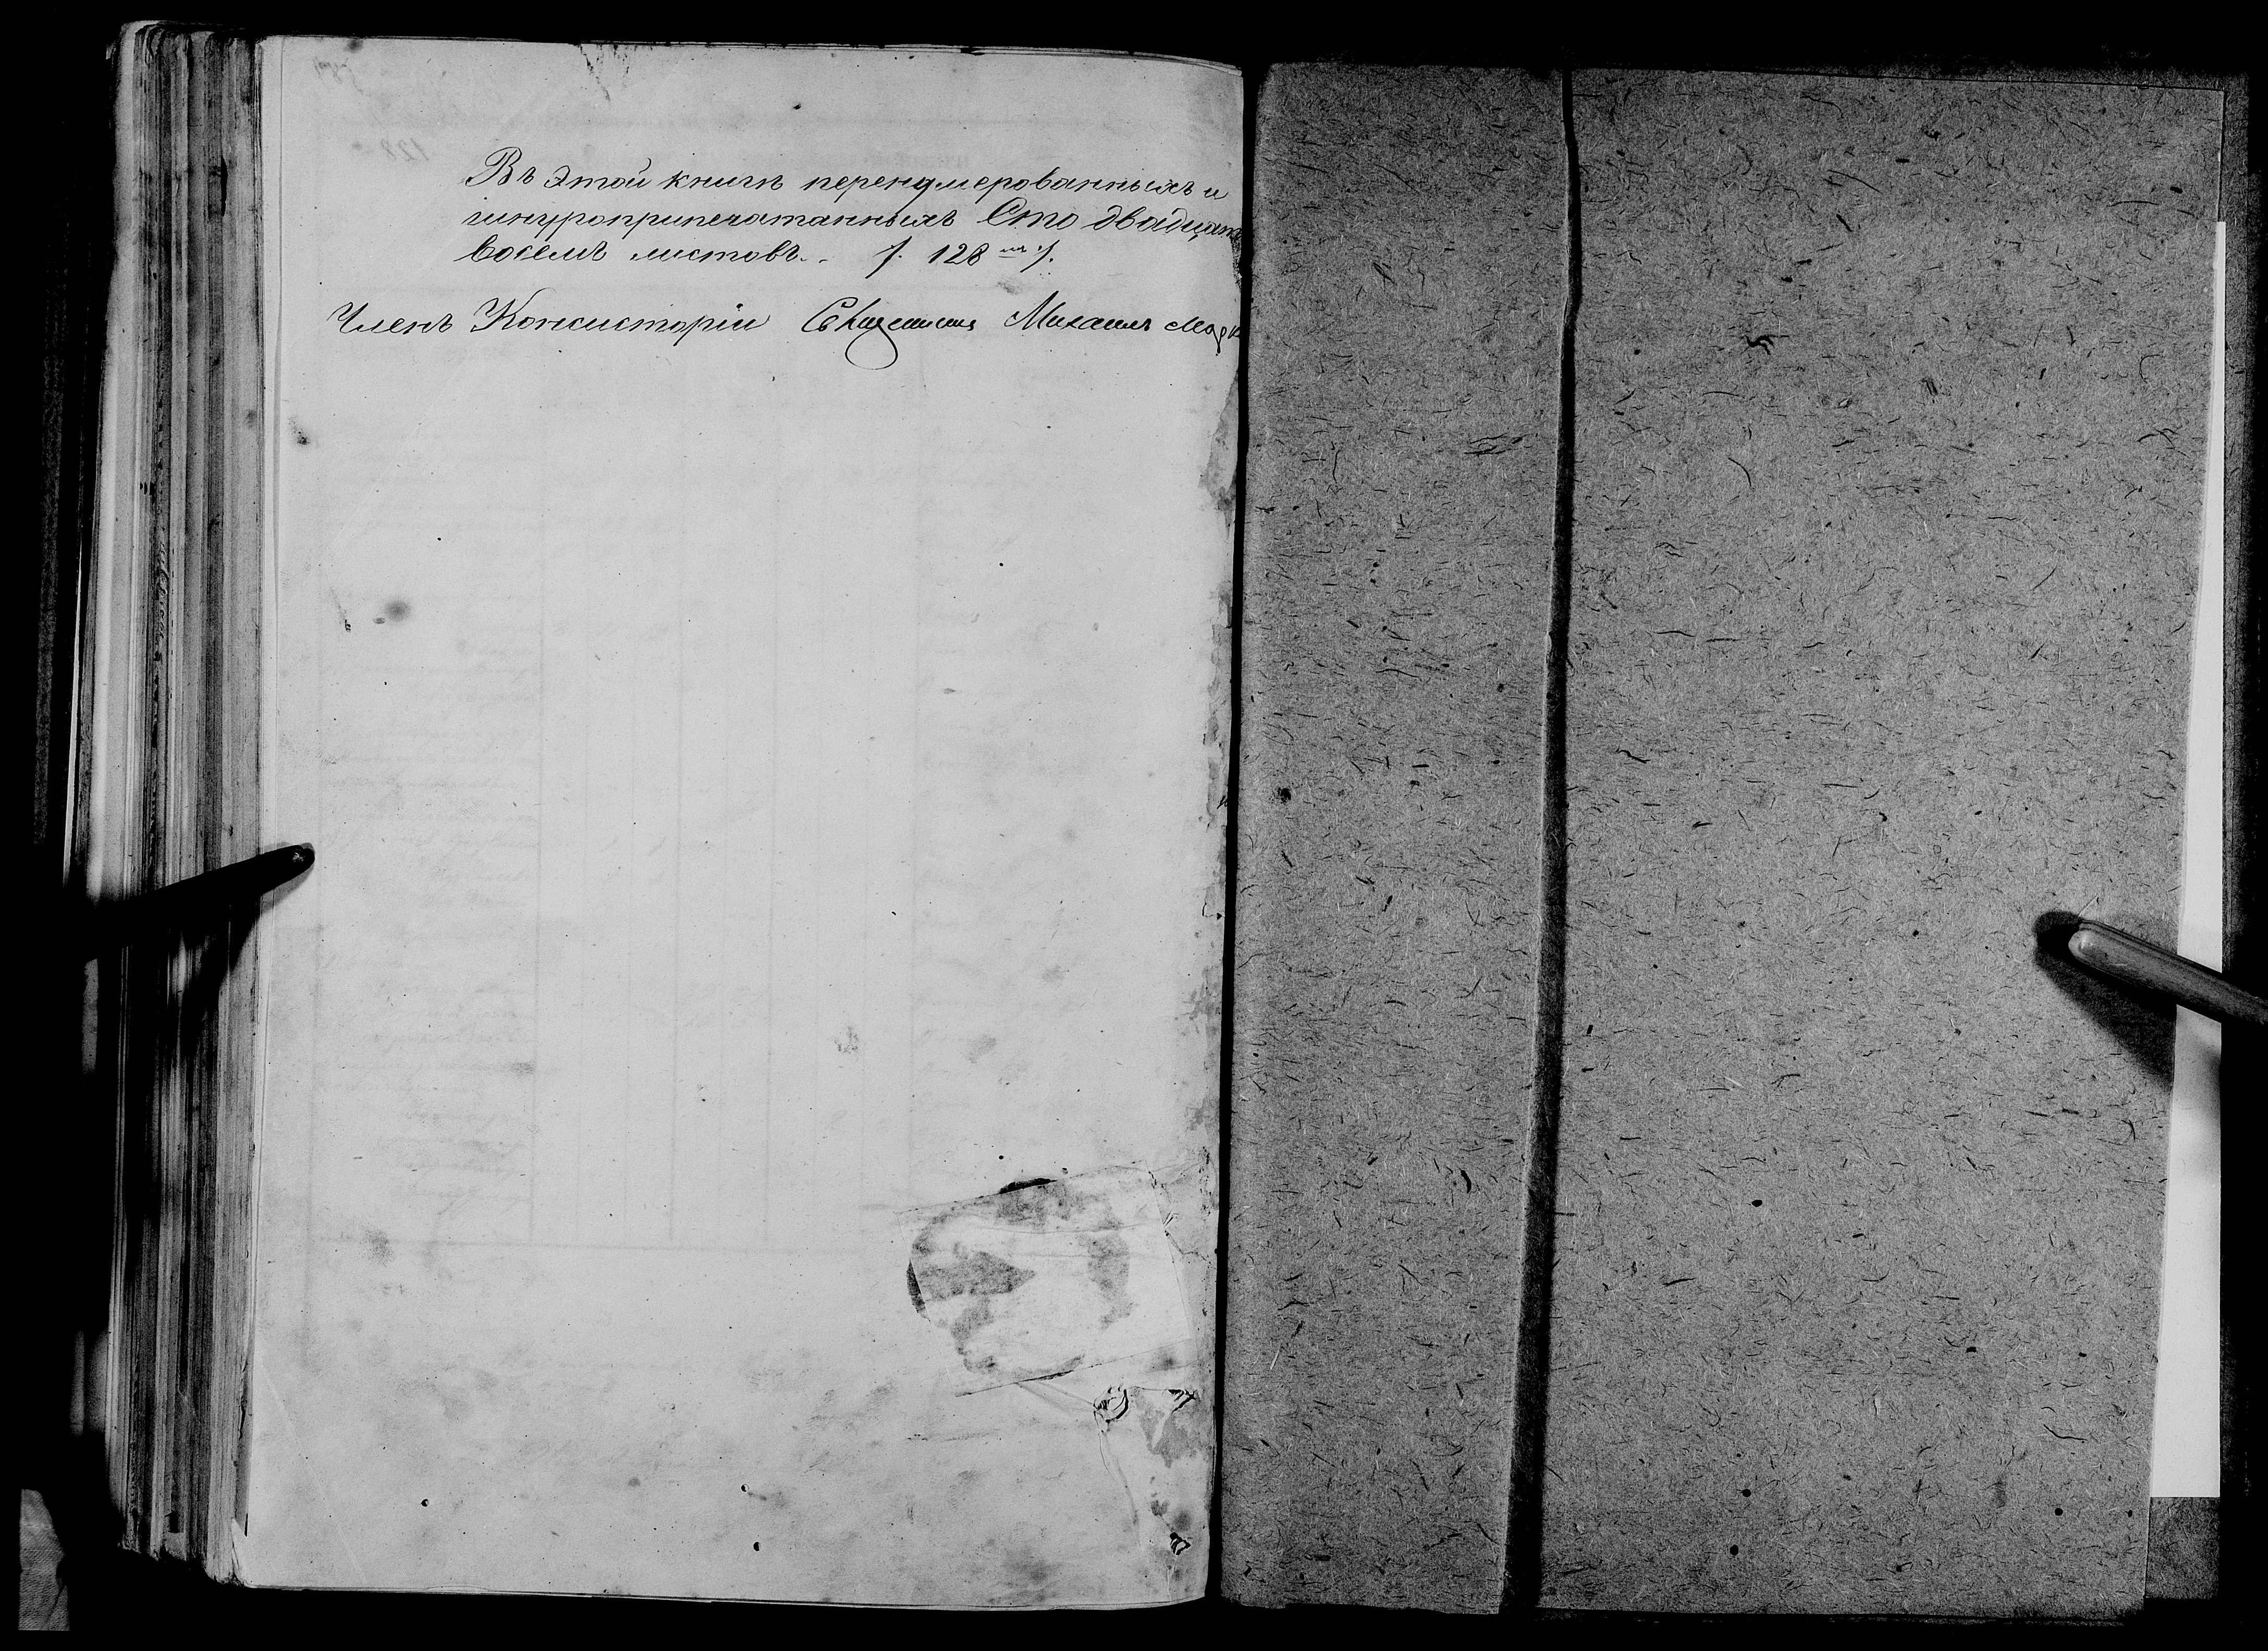 Въ этой книгѣ перенумерованныхъ и
шнуроприпечатанныхъ Сто двадцать
восемь листовъ. /. 128 ./.
Членъ Консисторіи Священникъ Михаилъ